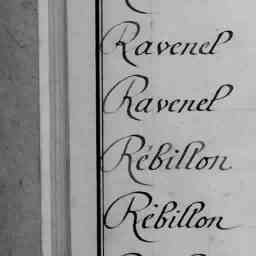 Ravenel
Ravenel
Rébillon
Rébillon